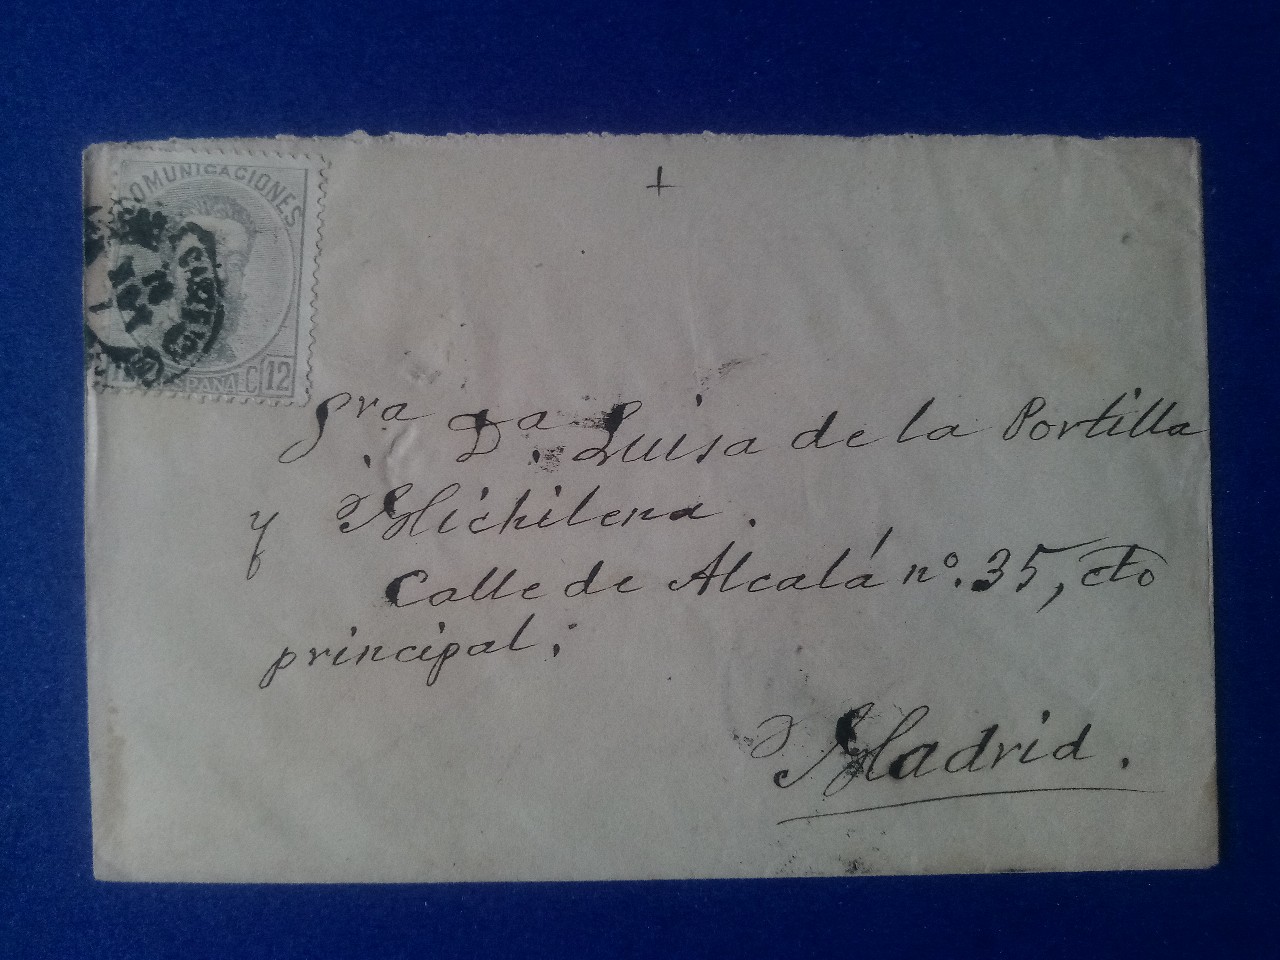 COMUNICACIONES
ESPAÑA C 12
Sra Da. Luisa de la Portilla
y Michilena.
Calle de Alcalá nº. 35, cto
principal.
Madrid.